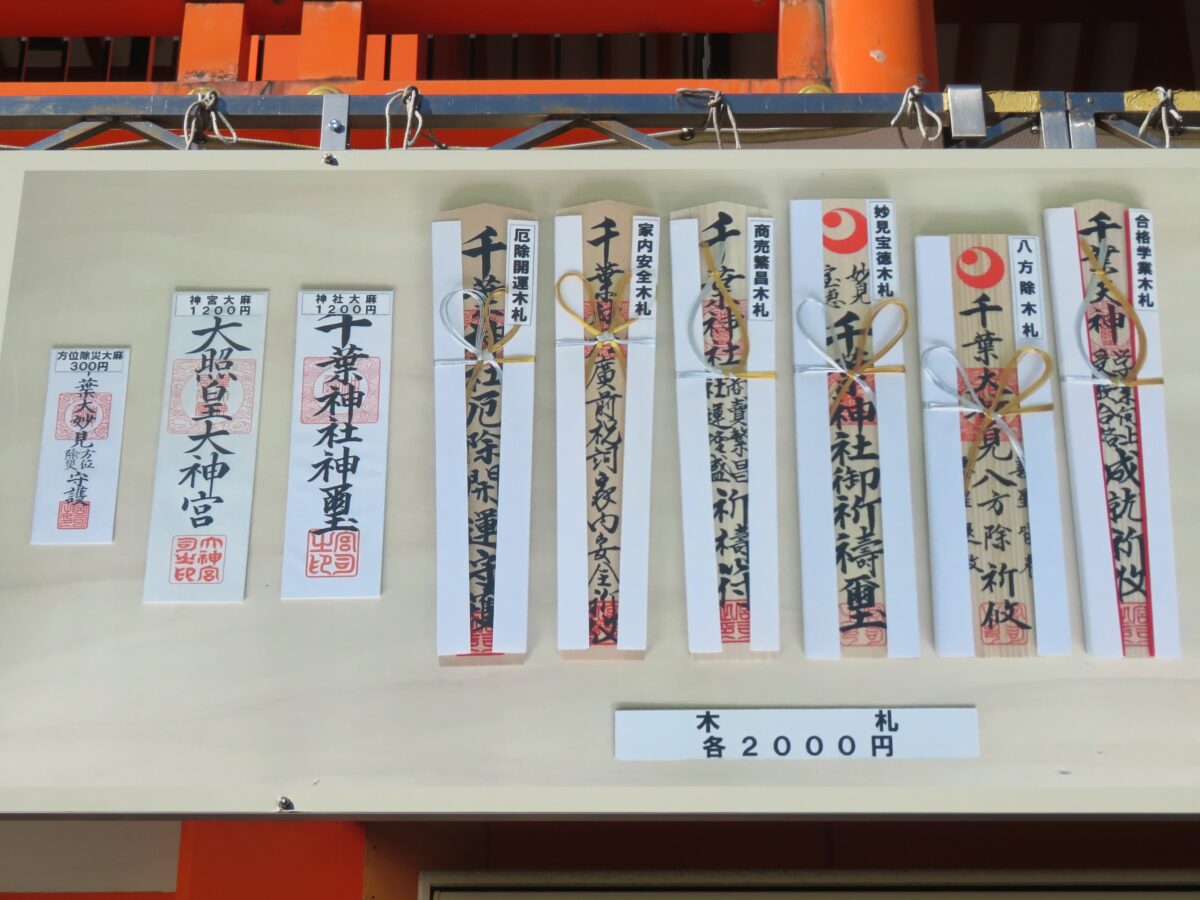 方位除災大麻
300円
葉大妙見
方位
除災
守護
神宮大麻
1200円
天照皇大神宮
神社大麻
1200円
千葉神社神璽
厄除開運木札
千葉神社厄除開運守護
家内安全木札
廣前祝詞家内安全祈攸
商売繁昌木札
千葉神社
商賣繁昌
社運隆盛
祈禱符
妙見宝徳木札
妙見
千葉神社御祈禱璽
八方除木札
千葉大妙見八方除祈攸
合格学業木札
千葉天神
成就祈攸
木札
各2000円